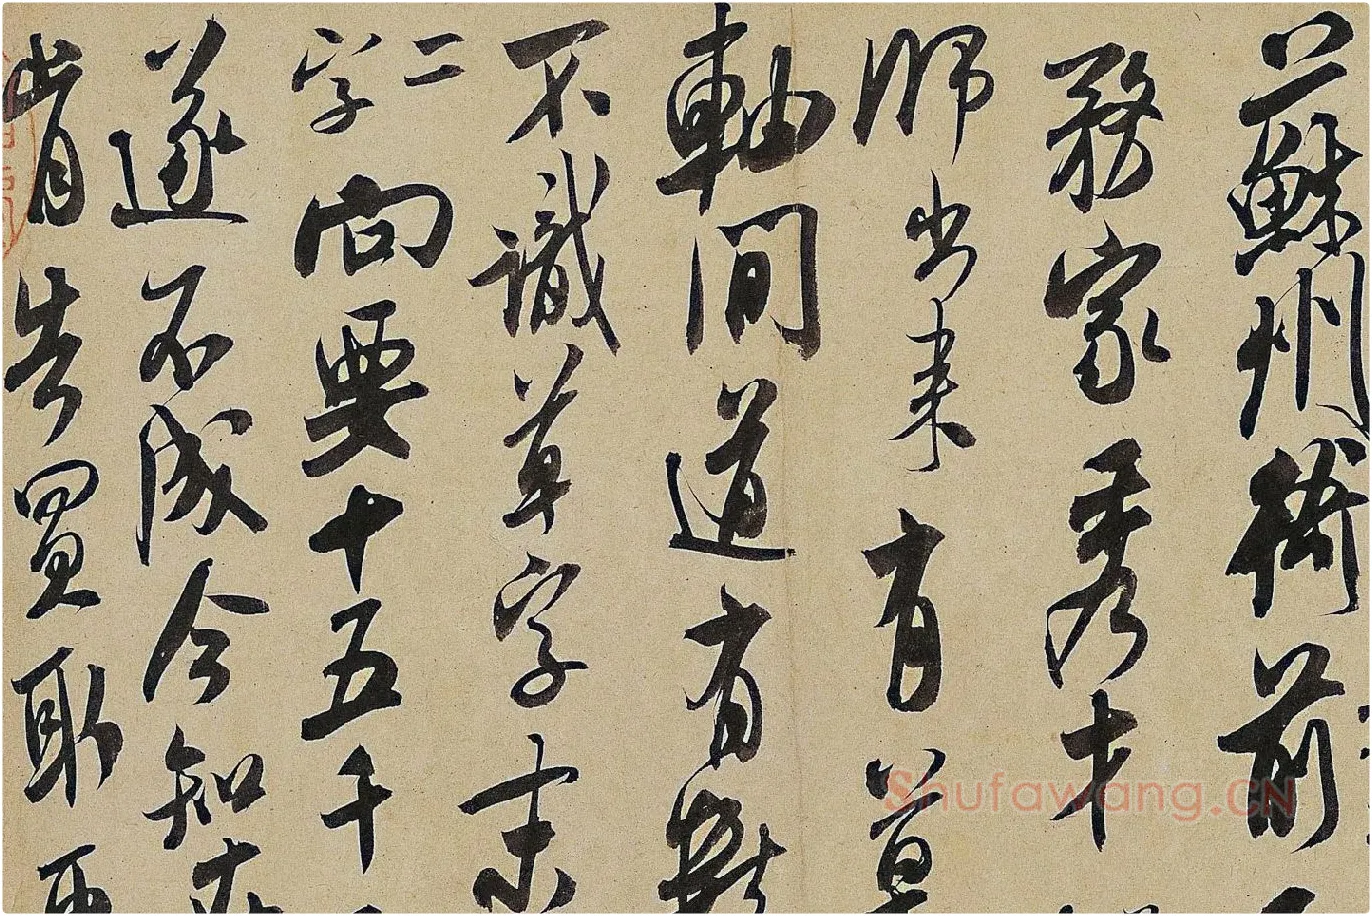 蘇州衙前
務家秀才
師出来有草
軸間道有數
不識草字
二字
向要十五千
遂不成今知
肯告買取
Shufawang.CN